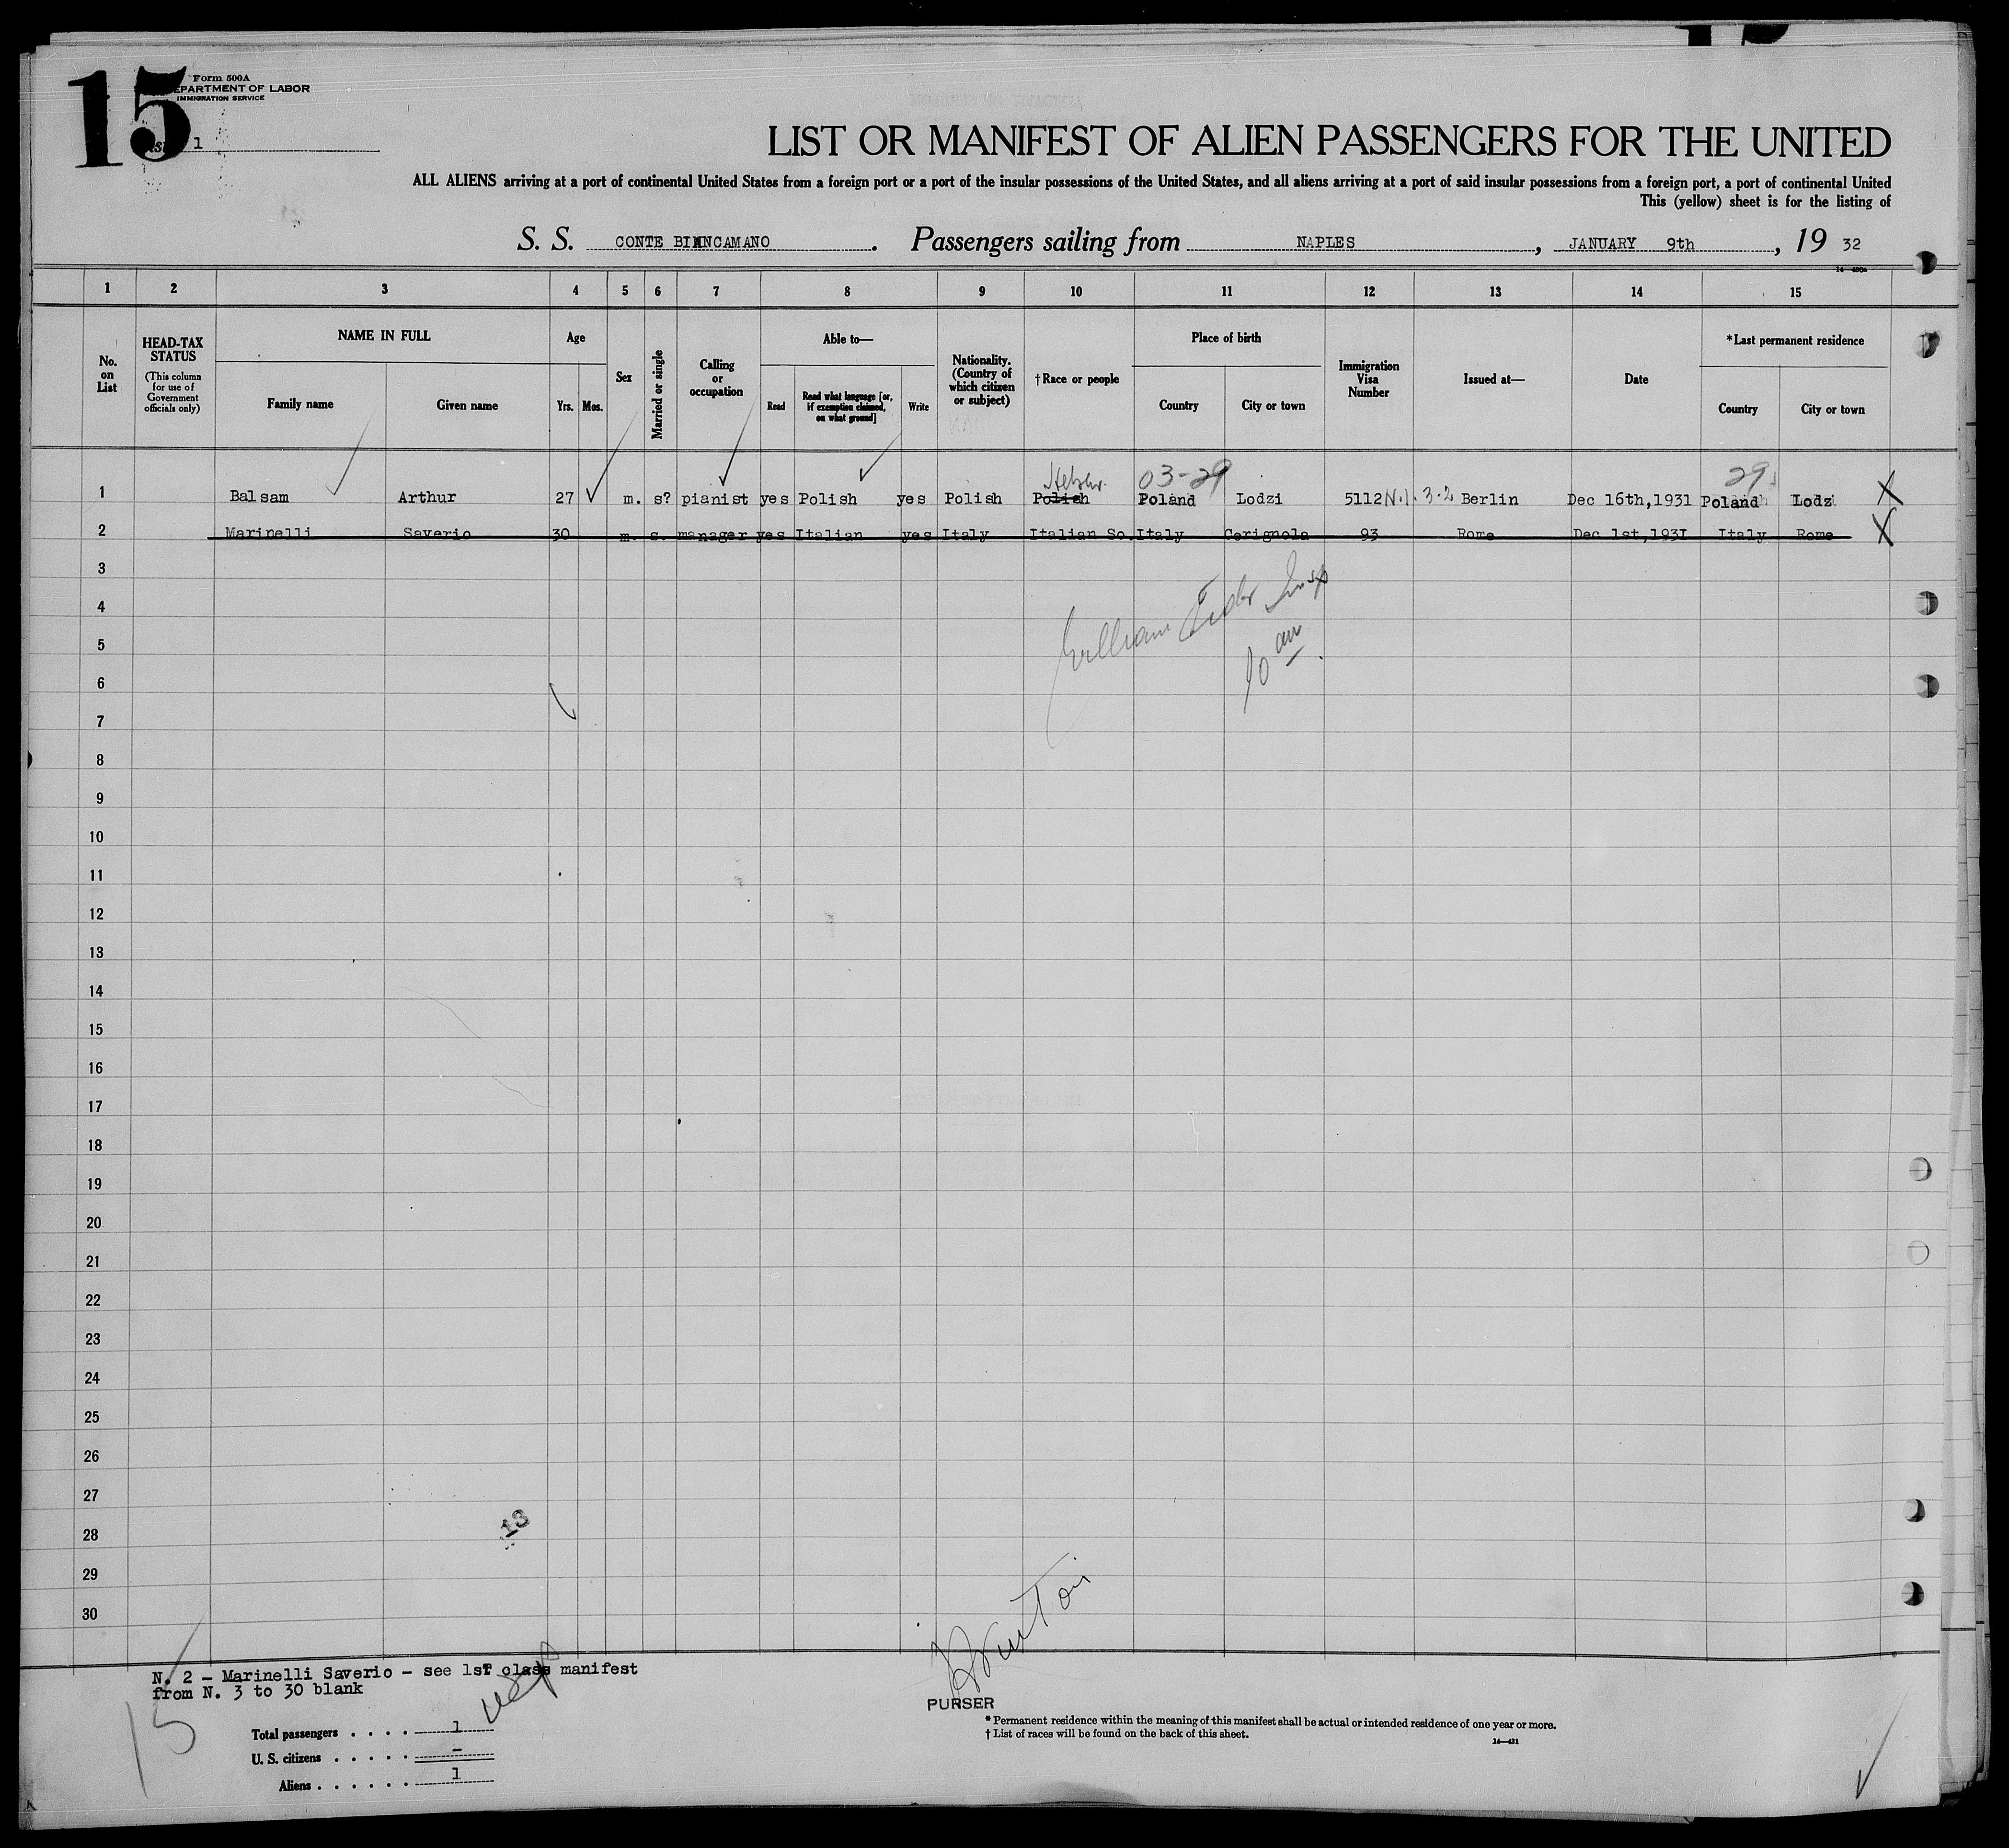 15
Form 500A
DEPARTMENT OF LABOR
IMMIGRATION SERVICE
1
LIST OR MANIFEST OF ALIEN PASSENGERS FOR THE UNITED
ALL ALIENS arriving at a port of continental United States from a foreign port or a port of the insular possessions of the United States, and all aliens arriving at a port of said insular possessions from a foreign port, a port of continental United
This (yellow) sheet is for the listing of
S. S. CONTE BIANCAMANO . Passengers sailing from NAPLES , JANUARY 9th , 19 32
1 2 3 4 5 6 7 8 9 10 11 12 13 14 15
No. on List
HEAD-TAX STATUS
(This column for use of Government officials only)
NAME IN FULL
Family name
Given name
Age
Yrs. Mos.
Sex
Married or single
Calling or occupation
Able to—
Read
Read what language [or, if exemption claimed, on what ground]
Write
Nationality. (Country of which citizen or subject)
†Race or people
Place of birth
Country
City or town
Immigration Visa Number
Issued at—
Date
*Last permanent residence
Country
City or town
Hebrew 03-29 29
1 Balsam Arthur 27 m. s? pianist yes Polish yes Polish Polish Poland Lodzi 5112 3-2 Berlin Dec 16th,1931 Poland Lodz X
2 Marinelli Saverio 30 m. s. manager yes Italian yes Italy Italian So. Italy Cerignola 93 Rome Dec 1st,1931 Italy Rome X
3
William Insp
4
5
10 am
6
7
8
9
10
11
12
13
14
15
16
17
18
19
20
21
22
23
24
25
26
27
28
13
29
30
N. 2 - Marinelli Saverio - see 1st class manifest
from N. 3 to 30 blank
15
PURSER
Total passengers . . . . 1
U. S. citizens . . . . . -
Aliens . . . . . . 1
* Permanent residence within the meaning of this manifest shall be actual or intended residence of one year or more.
† List of races will be found on the back of this sheet.
14—431